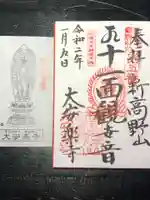 奉拝
新高野山
十一面観世音
大安楽寺
令和二年
一月五日
大安楽寺